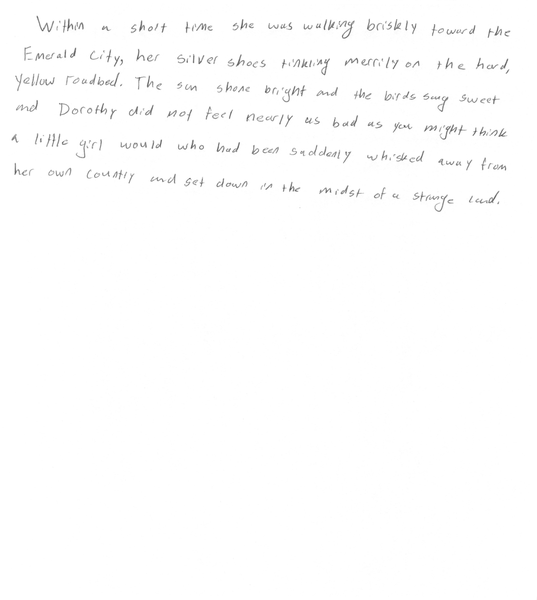 Within a short time she was walking briskly toward the
Emerald City, her silver shoes tinkling merrily on the hard,
yellow roadbed. The sun shone bright and the birds sang sweet
and Dorothy did not feel nearly as bad as you might think
a little girl would who had been suddenly whisked away from
her own country and set down in the midst of a strange land.